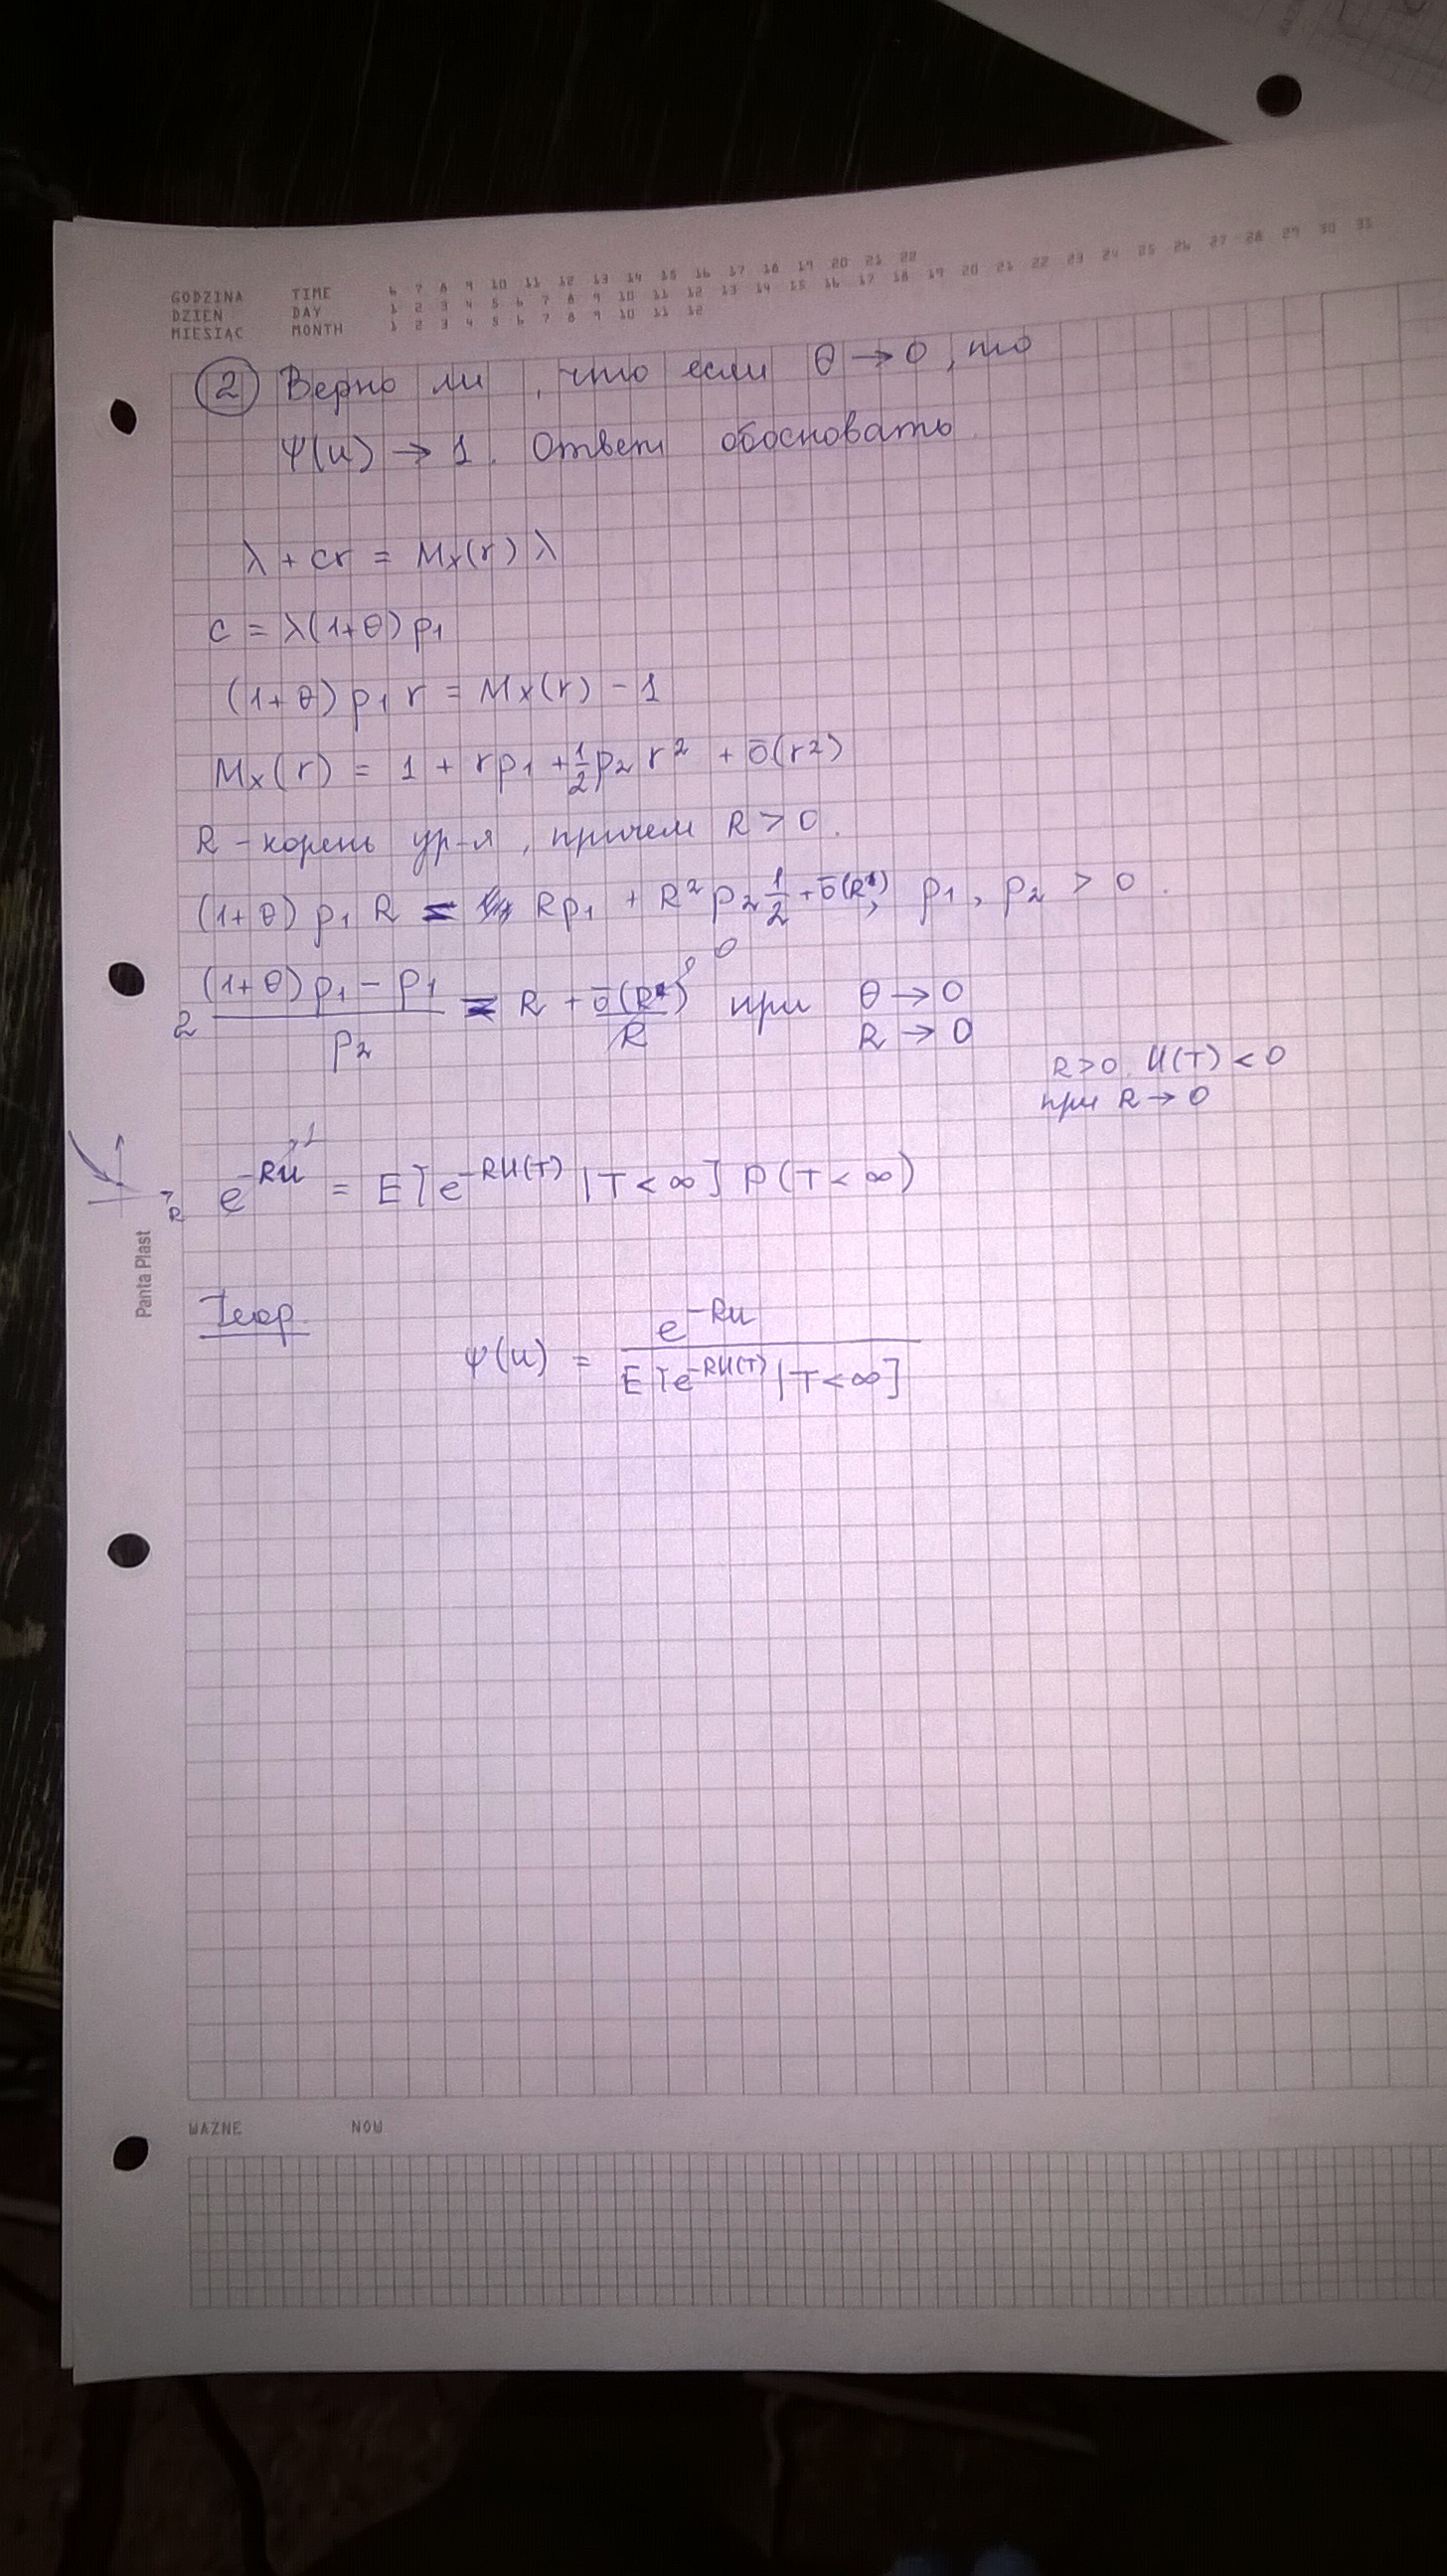 GODZINA TIME 6 7 8 9 10 11 12 13 14 15 16 17 18 19 20 21 22
DZIEŃ DAY 1 2 3 4 5 6 7 8 9 10 11 12 13 14 15 16 17 18 19 20 21 22 23 24 25 26 27 28 29 30 31
MIESIĄC MONTH 1 2 3 4 5 6 7 8 9 10 11 12
② Верно ли, что если θ → 0, то
Ψ(u) → 1. Ответ обосновать.
λ + cr = Mx(r) λ
c = λ(1+θ) p₁
(1+θ) p₁ r = Mx(r) - 1
Mx(r) = 1 + rp₁ + ½ p₂ r² + ō(r²)
R - корень ур-я, причем R > 0.
(1+θ) p₁ R = Rp₁ + R² p₂ ½ + ō(R²), p₁, p₂ > 0.
2 ((1+θ) p₁ - p₁)/p₂ = R + ō(R²)/R → 0 при θ → 0
R → 0
R > 0, U(T) < 0
при R → 0
e^(-Ru) → 1 = E[e^(-RU(T)) | T < ∞] P(T < ∞)
R
Panta Plast
Теор.
ψ(u) = e^(-Ru) / E[e^(-RU(T)) | T < ∞]
WAŻNE NOW